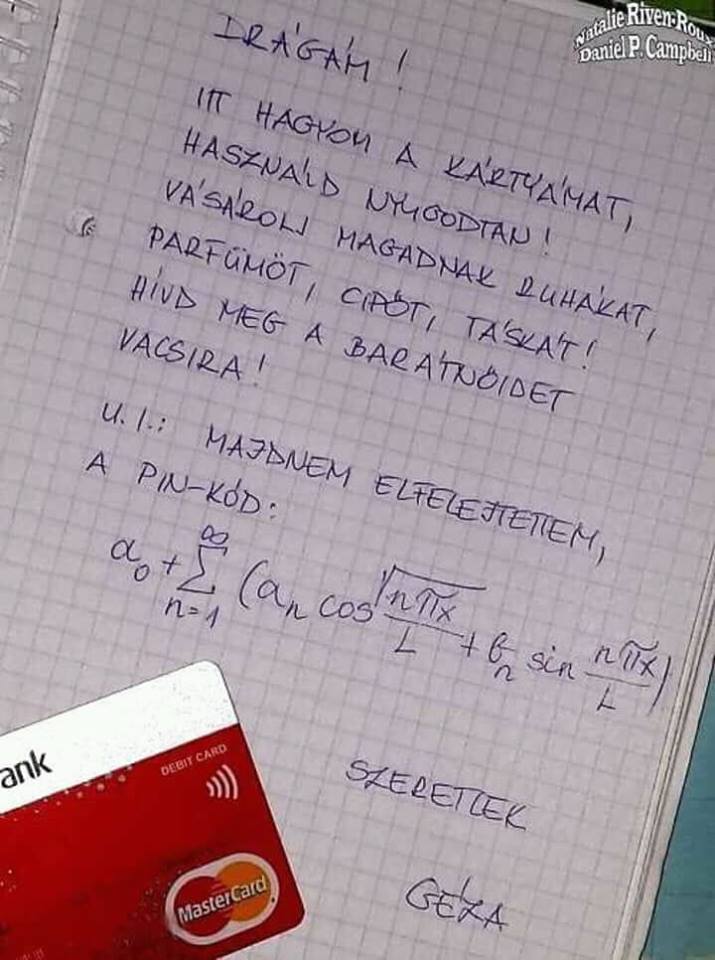 Natalie Riven-Roux
Daniel P. Campbell
DRÁGÁM!
ITT HAGYOM A KÁRTYÁMAT,
HASZNÁLD NYUGODTAN!
VÁSÁROLJ MAGADNAK RUHÁKAT,
PARFÜMÖT, CIPŐT, TÁSKÁT!
HÍVD MEG A BARÁTNŐIDET
VACSIRA!
U.I.: MAJDNEM ELFELEJTETTEM,
A PIN-KÓD:
a₀ + ∑_{n=1}^{∞} (aₙ cos √(nπx)/L + bₙ sin nπx/L)
ank
DEBIT CARD
MasterCard
SZERETLEK
GÉZA